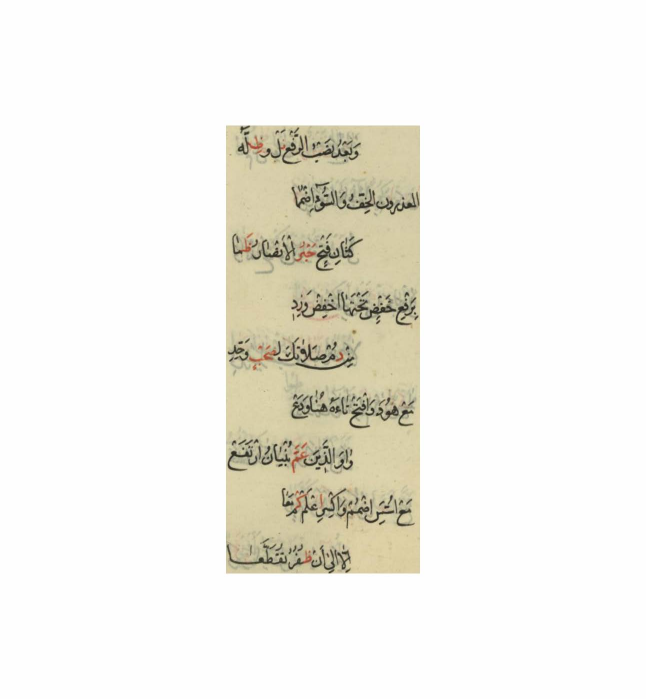 وَبَعْدُ نَصْبُ الرَّفْعِ نَلْ وَظِلُّهُ
المعذرون الخِفُّ وَالسُّوءِ اضْمُمَا
كَثَانِ فَتْحٍ حَبْرٌ الأنصَار ظَمَا
بِرَفْعِ خَفْضٍ تَحْتَهَا اخْفِضْ وَزِدِ
مِنْ دُمْ صَلَاتَكَ لِصَحْبٍ وَحِّدِ
مَعْ هُودَ وَافْتَحْ تَاءَهُ هُنَا وَدَعْ
وَاوَ الَّذِينَ عَمَّ بُنْيَانُ ارْتَفَعْ
مَعْ اُسِّسَ اضْمُمْ وَاكْسِرِ اعْلَمْ كَمْ مَعَا
إِلَّا إِلَى أَنْ ظُفْرٌ تَقَطَّعَا